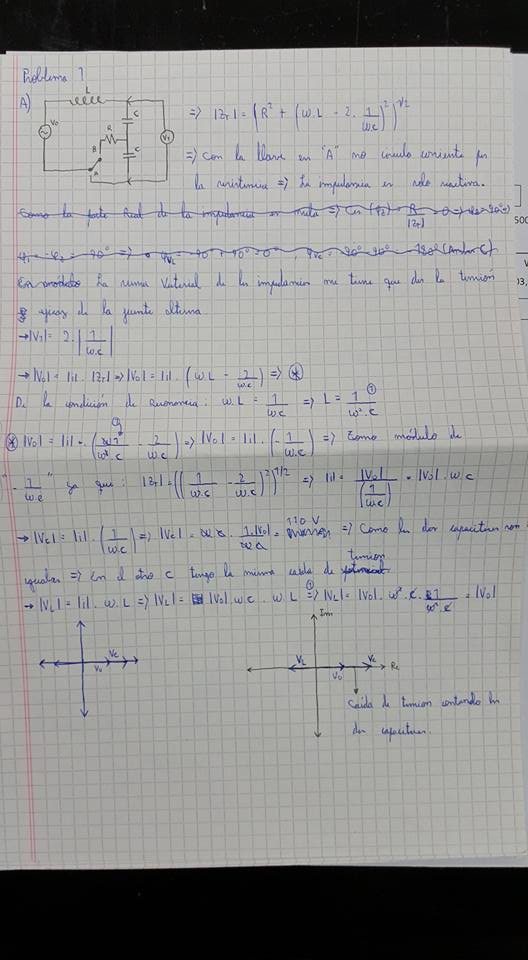 Problema 1
A)
L
C
R
B
A
C
V0
V1
=> |ZT| = (R² + (ω.L - 2. 1/ωC)²)^1/2
=> Con la llave en "A" no circula corriente por
la resistencia => La impedancia es solo reactiva.
Como la parte Real de la impedancia es nula => Cos (φz) = R/|ZT| = 0 =>
En módulo La suma Vectorial de las impedancias me tiene que dar la tensión
de la fuente alterna.
→ |V1| = 2. |1/ω.C|
→ |V0| = |i|. |ZT| => |V0| = |i|. (ω.L - 2/ω.C) => (*)
De la condición de Resonancia: ω.L = 1/ωC => L = 1/ω².C (1)
(*) |V0| = |i|. (ω1/ω².C - 2/ωC) => |V0| = |i|. (-1/ω.C) => Tomo módulo de
"-1/ωC" ya que: |ZT| = ((1/ω.C - 2/ω.C)²)^1/2 => |i| = |V0|/(1/ωC) = |V0|.ω.C
→ |VC| = |i|. (1/ω.C) => |VC| = ωC. 1.|V0|/ωC = 110 V => Como los dos capacitores son
iguales => en el otro C tengo la misma caída de tensión
→ |VL| = |i|. ω.L => |VL| = |V0|.ωC.ω.L (1)=> |VL| = |V0|.ω².C.1/ω².C = |V0|
V0 VC
Im
VL V0 VC Re
Caída de tension contando los
dos capacitores.